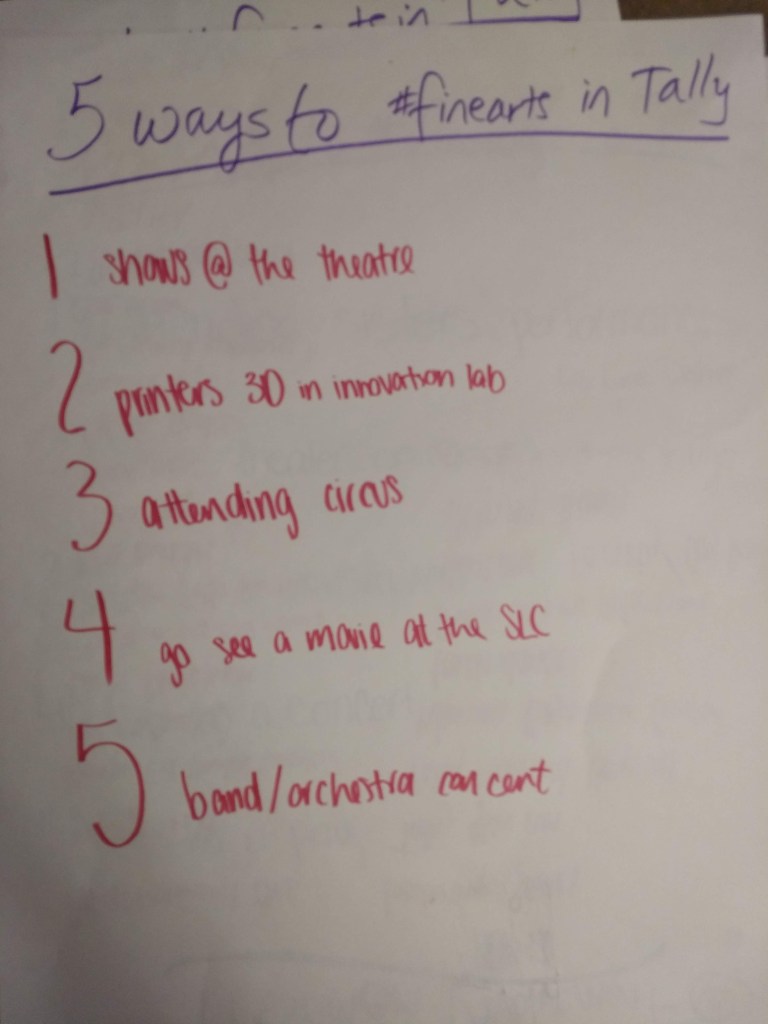 5 ways to #finearts in Tally
1 shows @ the theatre
2 printers 3D in innovation lab
3 attending circus
4 go see a movie at the SLC
5 band/orchestra concert